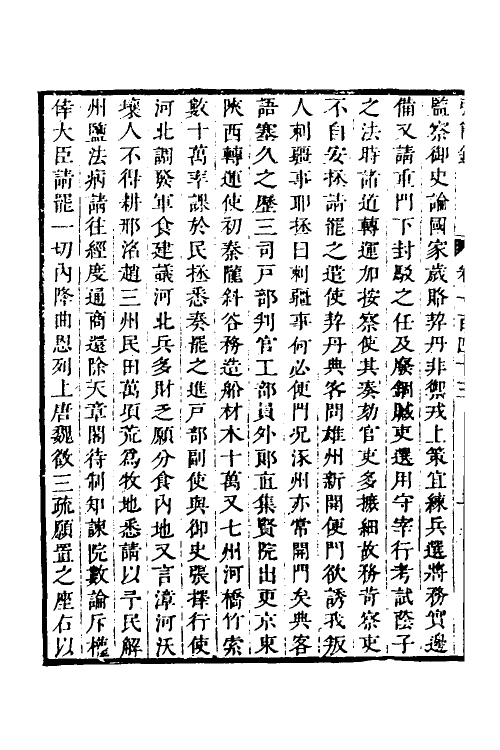 監察御史論國家歲賂契丹非禦戎上策宜練兵選將務實邊
備又請重門下封駁之任及廢錮贓吏選用守宰行考試蔭子
之法時諸道轉運加按察使其奏劾官吏多摭細故務苛察吏
不自安拯請罷之遣使契丹典客問雄州新開便門欲誘我叛
人刺疆事耶拯曰刺疆事何必便門况涿州亦常開門矣典客
語塞久之歷三司戸部判官工部員外郞直集賢院出更京東
陝西轉運使初秦隴斜谷務造船材木十萬又七州河橋竹索
數十萬率課於民拯悉奏罷之進戸部副使與御史張擇行使
河北調發軍食建議河北兵多財乏願分食內地又言漳河沃
壤人不得耕邢洺趙三州民田萬頃荒爲牧地悉請以予民解
州鹽法病請往經度通商還除天章閣待制知諫院數論斥權
倖大臣請罷一切內降曲恩列上唐魏徵三疏願置之座右以